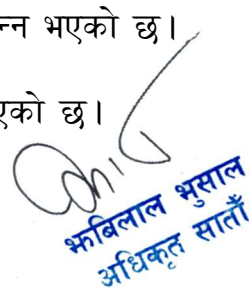 न्न भएको छ।
एको छ।
झबिलाल भुसाल
अधिकृत सातौँ